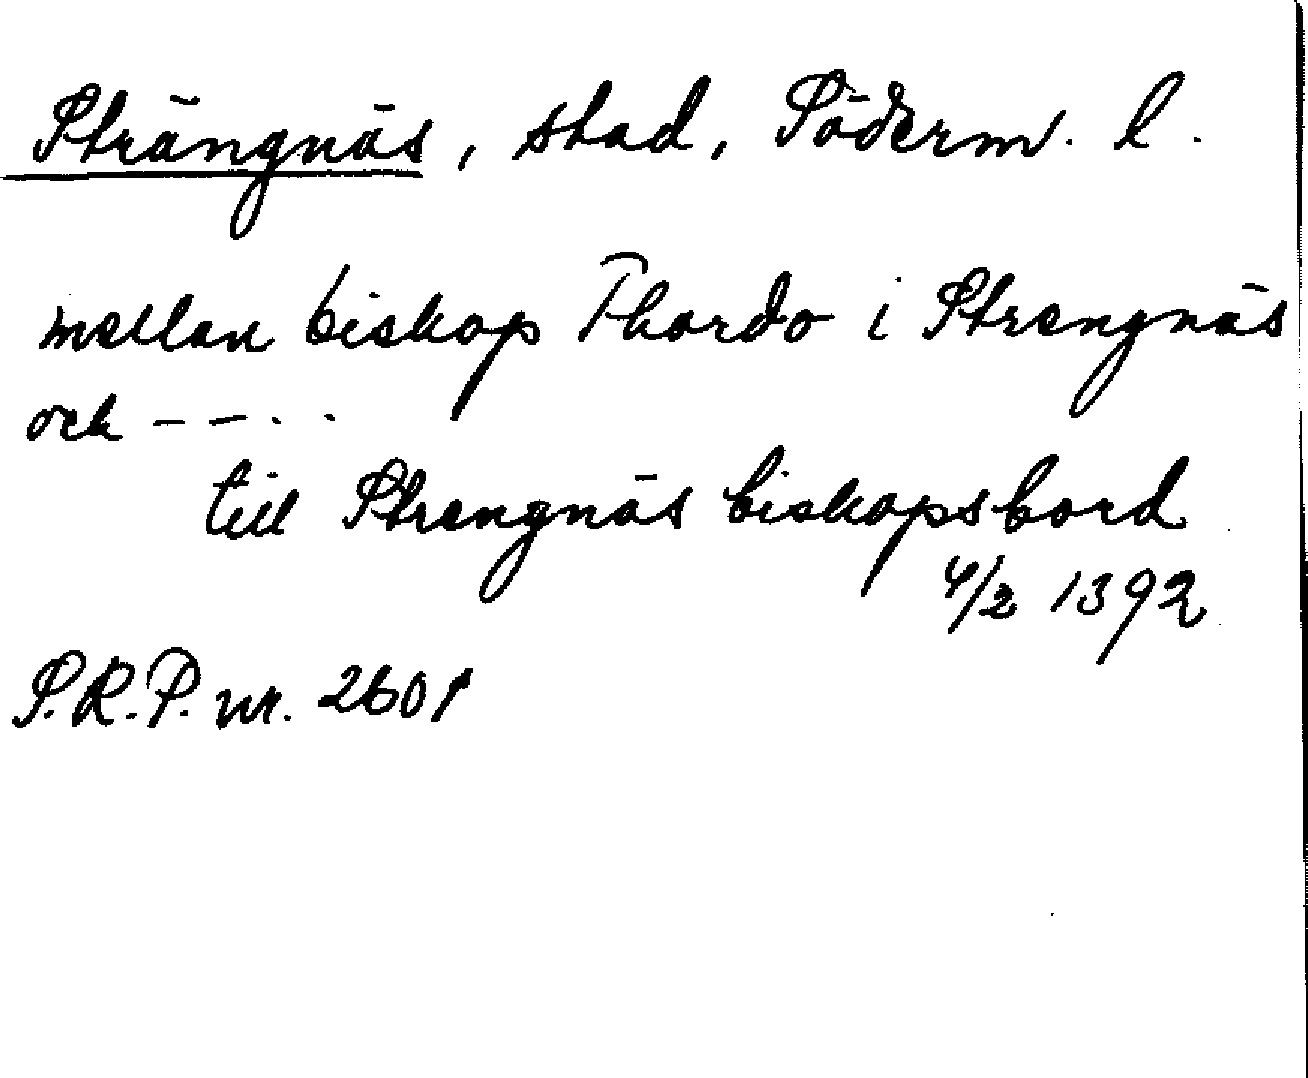 Strängnäs, stad, Söderm. l.
mellan biskop Thordo i Strengnäs
och - - . .
till Strengnäs biskopsbord
4/2 1392
S.R.P. nr. 2601